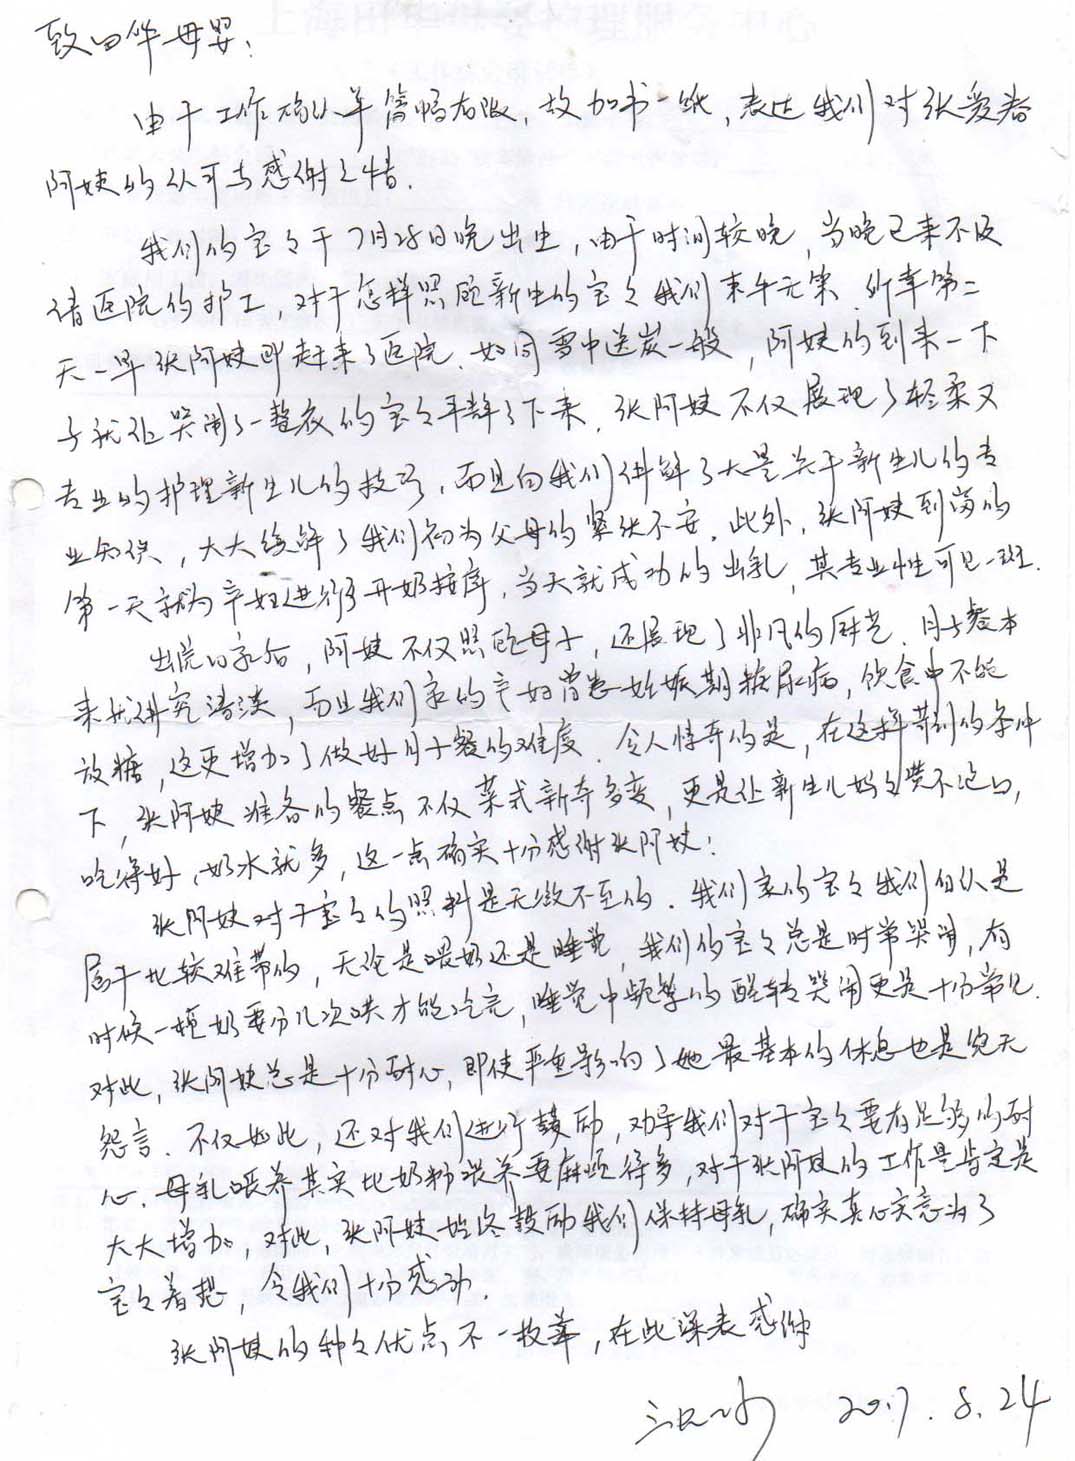 致田华母婴：
由于工作确认单篇幅有限，故加书一纸，表达我们对张爱春
阿姨的认可与感谢之情.
我们的宝々于7月28日晚出生，由于时间较晚，当晚已来不及
请医院的护工，对于怎样照顾新生的宝々我们束手无策.所幸第二
天一早张阿姨即赶来了医院.如同雪中送炭一般，阿姨的到来一下
子就让哭闹了一整夜的宝々平静了下来.张阿姨不仅展现了轻柔又
专业的护理新生儿的技巧，而且向我们讲解了大量关于新生儿的专
业知识，大大缓解了我们初为父母的紧张不安.此外，张阿姨到岗的
第一天就为产妇进行了开奶按摩，当天就成功的出乳，其专业性可见一斑.
出院回家后，阿姨不仅照顾母子，还展现了非凡的厨艺.月子餐本
来就讲究清淡，而且我们家的产妇曾患妊娠期糖尿病，饮食中不能
放糖，这更增加了做好月子餐的难度.令人惊奇的是，在这样苛刻的条件
下，张阿姨准备的餐点不仅菜式新奇多变，更是让新生儿妈々赞不绝口，
吃得好，奶水就多，这一点确实十分感谢张阿姨！
张阿姨对于宝々的照料是无微不至的.我们家的宝々我们自认是
属于比较难带的，无论是喂奶还是睡觉，我们的宝々总是时常哭闹，有
时候一顿奶要分几次哄才能吃完，睡觉中频繁的醒转哭闹更是十分常见.
对此，张阿姨总是十分耐心，即使严重影响了她最基本的休息也是绝无
怨言.不仅如此，还对我们进行鼓励，劝导我们对于宝々要有足够的耐
心.母乳喂养其实比奶粉喂养要麻烦得多，对于张阿姨的工作量肯定是
大大增加，对此，张阿姨始终鼓励我们保持母乳，确实真心实意为了
宝々着想，令我们十分感动.
张阿姨的种々优点不一枚举，在此深表感谢
2017.8.24